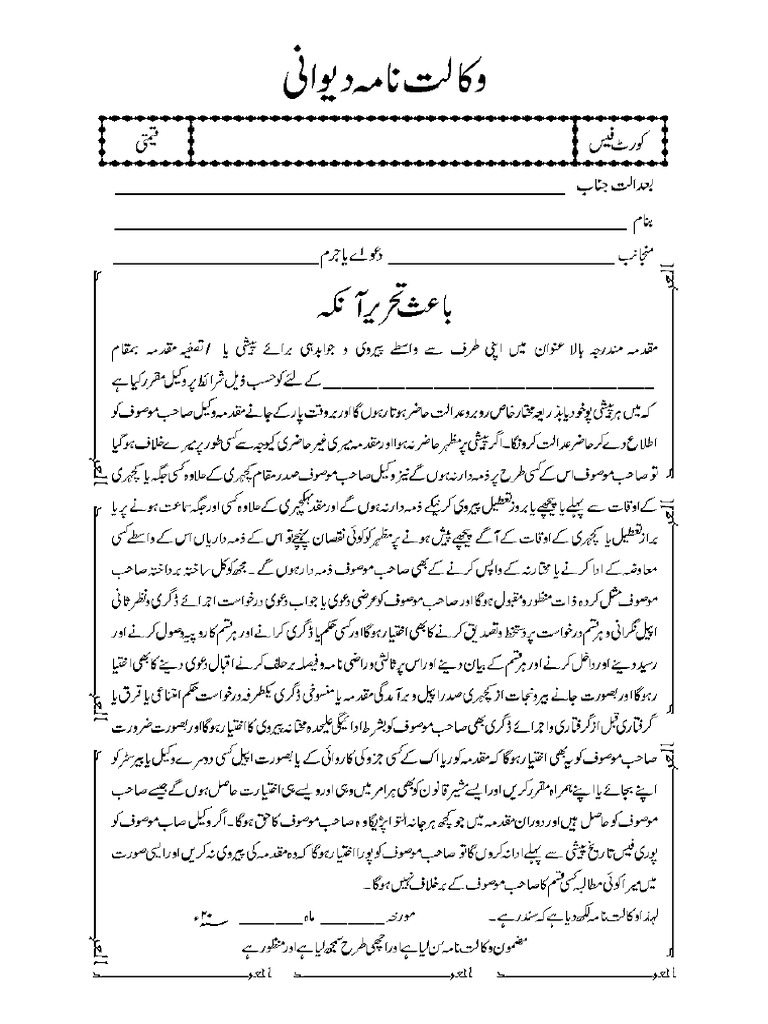 وکالت نامہ دیوانی
کورٹ فیس قیمتی
بعدالت جناب
بنام
منجانب دعوے یا جرم
باعث تحریر آنکہ
مقدمہ مندرجہ بالا عنوان میں اپنی طرف سے واسطے پیروی و جوابدہی برائے پیشی یا / تصفیہ مقدمہ بمقام
کے لئے کو حسب ذیل شرائط پر وکیل مقرر کیا ہے
کہ میں ہر پیشی پر خود یا بذریعہ مختار خاص روبرو عدالت حاضر ہوتا رہوں گا اور بروقت پکارے جانے مقدمہ وکیل صاحب موصوف کو
اطلاع دے کر حاضر عدالت کرونگا۔ اگر پیشی پر مظہر حاضر نہ ہوا اور مقدمہ میری غیر حاضری کیوجہ سے کسی طور پر میرے خلاف ہو گیا
تو صاحب موصوف اس کے کسی طرح پر ذمہ دار نہ ہوں گے نیز وکیل صاحب موصوف صدر مقام کچہری کے علاوہ کسی جگہ یا کچہری
کے اوقات سے پہلے یا پیچھے یا بروز تعطیل پیروی کرنیکے ذمہ دار نہ ہوں گے اور مقدمہ کچہری کے علاوہ کسی اور جگہ سماعت ہونے پر یا
بروز تعطیل یا کچہری کے اوقات کے آگے پیچھے پیش ہونے پر مظہر کو کوئی نقصان پہنچے تو اس کے ذمہ داریاں اس کے واسطے کسی
معاوضہ کے ادا کرنے یا مختارنہ کے واپس کرنے کے بھی صاحب موصوف ذمہ دار ہوں گے ۔ مجھ کو کل ساختہ پرداختہ صاحب
موصوف مثل کردہ ذات منظور و مقبول ہو گا اور صاحب موصوف کو عرضی دعویٰ یا جواب دعویٰ درخواست اجرائے ڈگری و نظر ثانی
اپیل نگرانی و ہر قسم درخواست پر دستخط و تصدیق کرنے کا بھی اختیار ہو گا اور کسی حکم یا ڈگری کرانے اور ہر قسم کا روپیہ وصول کرنے اور
رسید دینے اور داخل کرنے اور ہر قسم کے بیان دینے اور اس پر ثالثی و راضی نامہ و فیصلہ بر حلف کرنے اقبال دعویٰ دینے کا بھی اختیا
رہو گا اور بصورت جانے بیرونجات از کچہری صدر اپیل و برآمدگی مقدمہ یا منسوخی ڈگری یکطرفہ درخواست حکم امتناعی یا قرق یا
گرفتاری قبل از گرفتاری و اجرائے ڈگری بھی صاحب موصوف کو بشرط ادائیگی علیحدہ مختانہ پیروی کا اختیار ہو گا اور بصورت ضرورت
صاحب موصوف کو یہ بھی اختیار ہو گا کہ مقدمہ کوریا اس کے کسی جزو کی کاروائی کے یا بصورت اپیل کسی دوسرے وکیل یا بیرسٹر کو
اپنے بجائے یا اپنے ہمراہ مقرر کریں اور ایسے مشیر قانون کو بھی ہر امر میں وہی اور ویسے ہی اختیارت حاصل ہوں گے جیسے صاحب
موصوف کو حاصل ہیں اور دوران مقدمہ میں جو کچھ ہرجانہ التوا پڑیگا وہ صاحب موصوف کا حق ہو گا۔ اگر وکیل صاب موصوف کو
پوری فیس تاریخ پیشی سے پہلے ادا نہ کروں گا تو صاحب موصوف کو پورا اختیار ہو گا کہ وہ مقدمہ کی پیروی نہ کریں اور ایسی صورت
میں میرا کوئی مطالبہ کسی قسم کا صاحب موصوف کے بر خلاف نہیں ہو گا۔
لہذا وکالت نامہ لکھ دیا ہے کہ سندر ہے۔ مورخہ ماہ ۲۰ء
مضمون وکالت نامہ سن لیا ہے اور اچھی طرح سمجھ لیا ہے اور منظور ہے
العبد العبد العبد